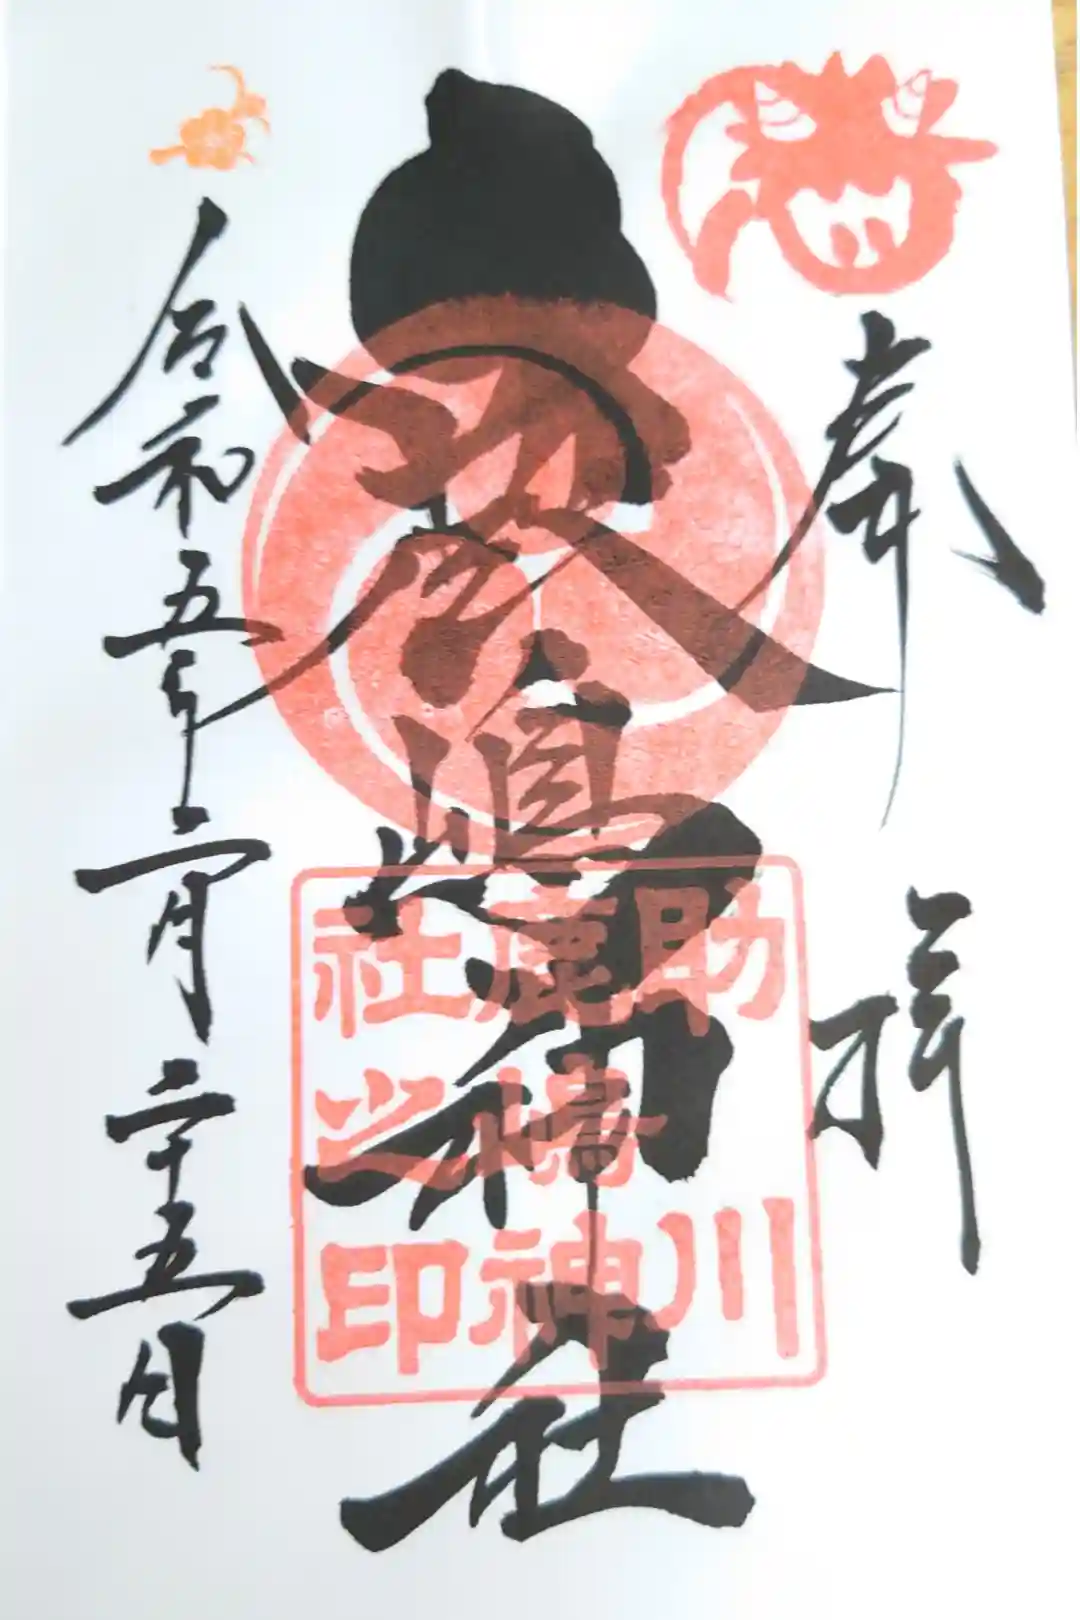 奉拝
鹿嶋神社
助川
鹿嶋神
社之印
令和五年二月二十五日